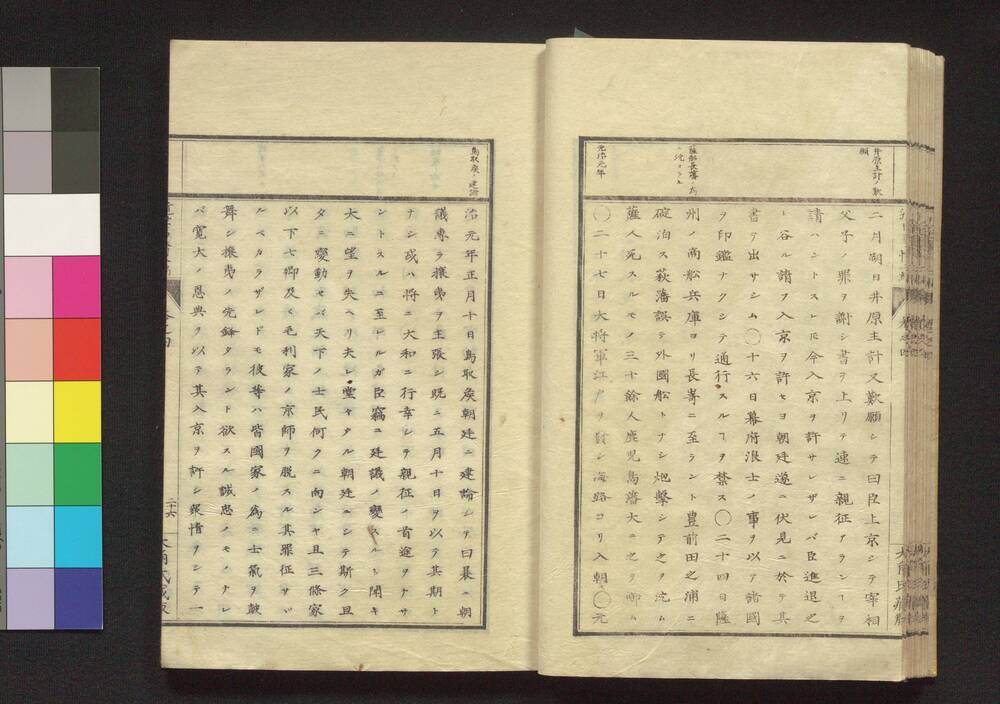 井原主計ノ歎
願
二月朔日井原主計又歎願シテ曰臣上京シテ宰相
父子ノ罪ヲ謝シ書ヲ上リテ速ニ親征アランヿヲ
請ハントスレ𪜈今入京ヲ許サレザレバ臣進退之
レ谷ル請フ入京ヲ許セヨ朝廷遂ニ伏見ニ於テ其
書ヲ出サシム〇十六日幕府浪士ノ事ヲ以テ諸國
ヲ印鑑ナクシテ通行スルヿヲ禁ス〇二十四日薩
薩船長藩ノ為
ニ沈メラル
州ノ商船兵庫ヨリ長崎ニ至ラント豊前田之浦ニ
碇泊ス萩藩誤テ外國船トナシ炮撃シテ之ヲ沈ム
薩人死スルモノ三十餘人鹿児島藩大ニ之ヲ啣ム
元治元年
〇二十七日大将軍江戸ヲ發シ海路ヨリ入朝〇元
鳥取侯ノ建議
治元年正月十日鳥取侯朝廷ニ建論シテ曰曩ニ朝
議專ラ攘夷ヲ主張シ既ニ五月十日ヲ以テ其期ト
ナシ或ハ将ニ大和ニ行幸シテ親征ノ首途ヲナサ
ントスルニ至レルガ臣竊ニ廷議ノ變スルト聞キ
大ニ望ヲ失ヘリ夫レ堂々タル朝廷ニシテ斯ク且
タニ變動セバ天下ノ士民何クニ向ンヤ且三條家
以下七卿及ヒ毛利家ノ京師ヲ脱スル其罪征サヾ
ルベカラザレドモ彼等ハ皆國家ノ為ニ士氣ヲ皷
舞シ攘夷ノ先鋒タラント欲スル誠忠ノモノナレ
バ寛大ノ恩典ヲ以テ其入京ヲ許シ衷情ヲシテ一
二十六